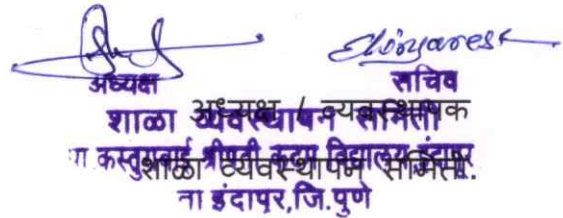 अध्यक्ष सचिव
अध्यक्ष / व्यवस्थापक
शाळा व्यवस्थापन समिती
कस्तुराबाई श्रीपती कदम विद्यालय इंदापूर
शाळा व्यवस्थापन समिती.
ता इंदापूर,जि.पुणे